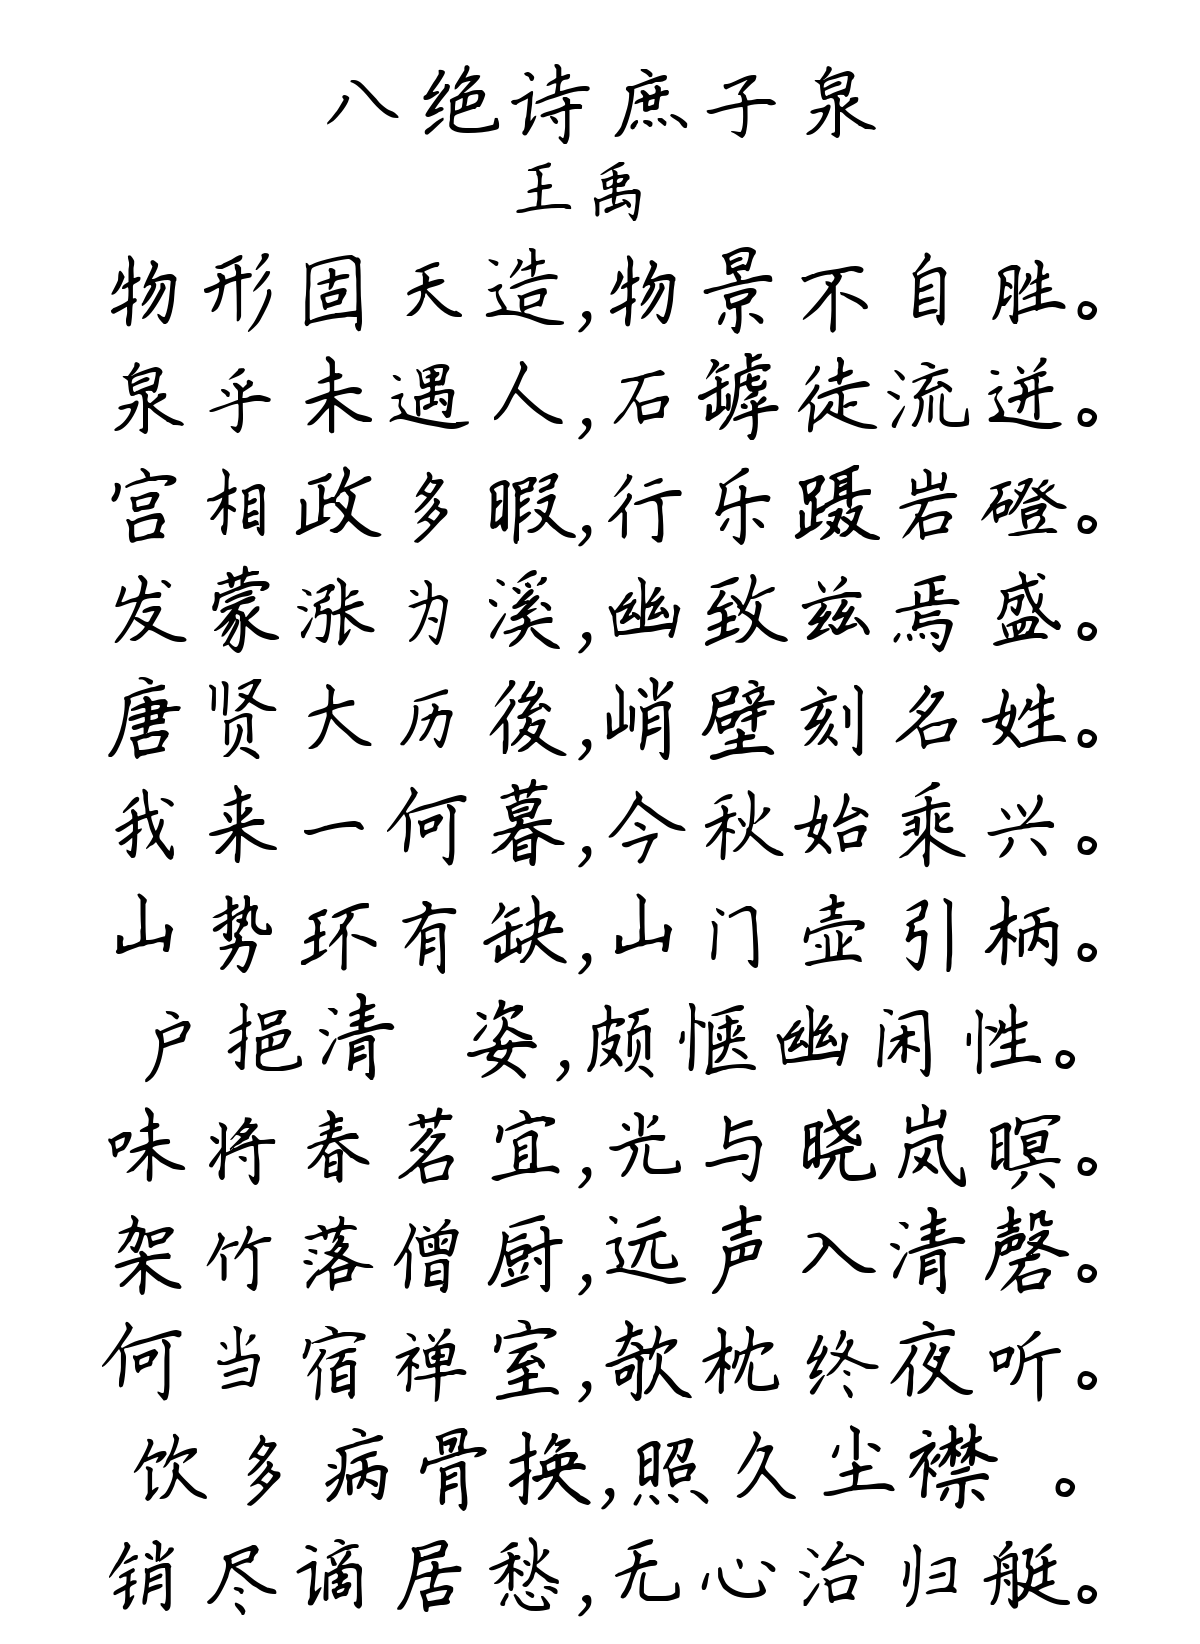 八绝诗庶子泉
王禹
物形固天造,物景不自胜。
泉乎未遇人,石罅徒流迸。
宫相政多暇,行乐蹑岩磴。
发蒙涨为溪,幽致兹焉盛。
唐贤大历後,峭壁刻名姓。
我来一何暮,今秋始乘兴。
山势环有缺,山门壶引柄。
户挹清 姿,颇惬幽闲性。
味将春茗宜,光与晓岚暝。
架竹落僧厨,远声入清磬。
何当宿禅室,欹枕终夜听。
饮多病骨换,照久尘襟 。
销尽谪居愁,无心治归艇。